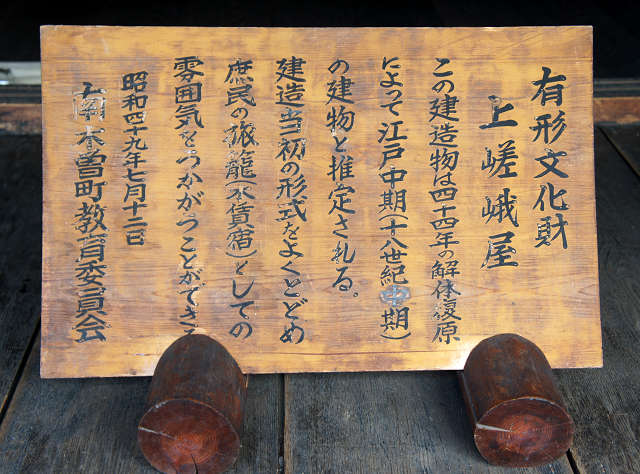 有形文化財
上嵯峨屋
この建造物は四十四年の解体復原
によって江戸中期(十八世紀中期)
の建物と推定される。
建造当初の形式をよくとどめ
庶民の旅籠(木賃宿)としての
雰囲気をうかがうことができる
昭和四十九年七月十二日
南木曽町教育委員会